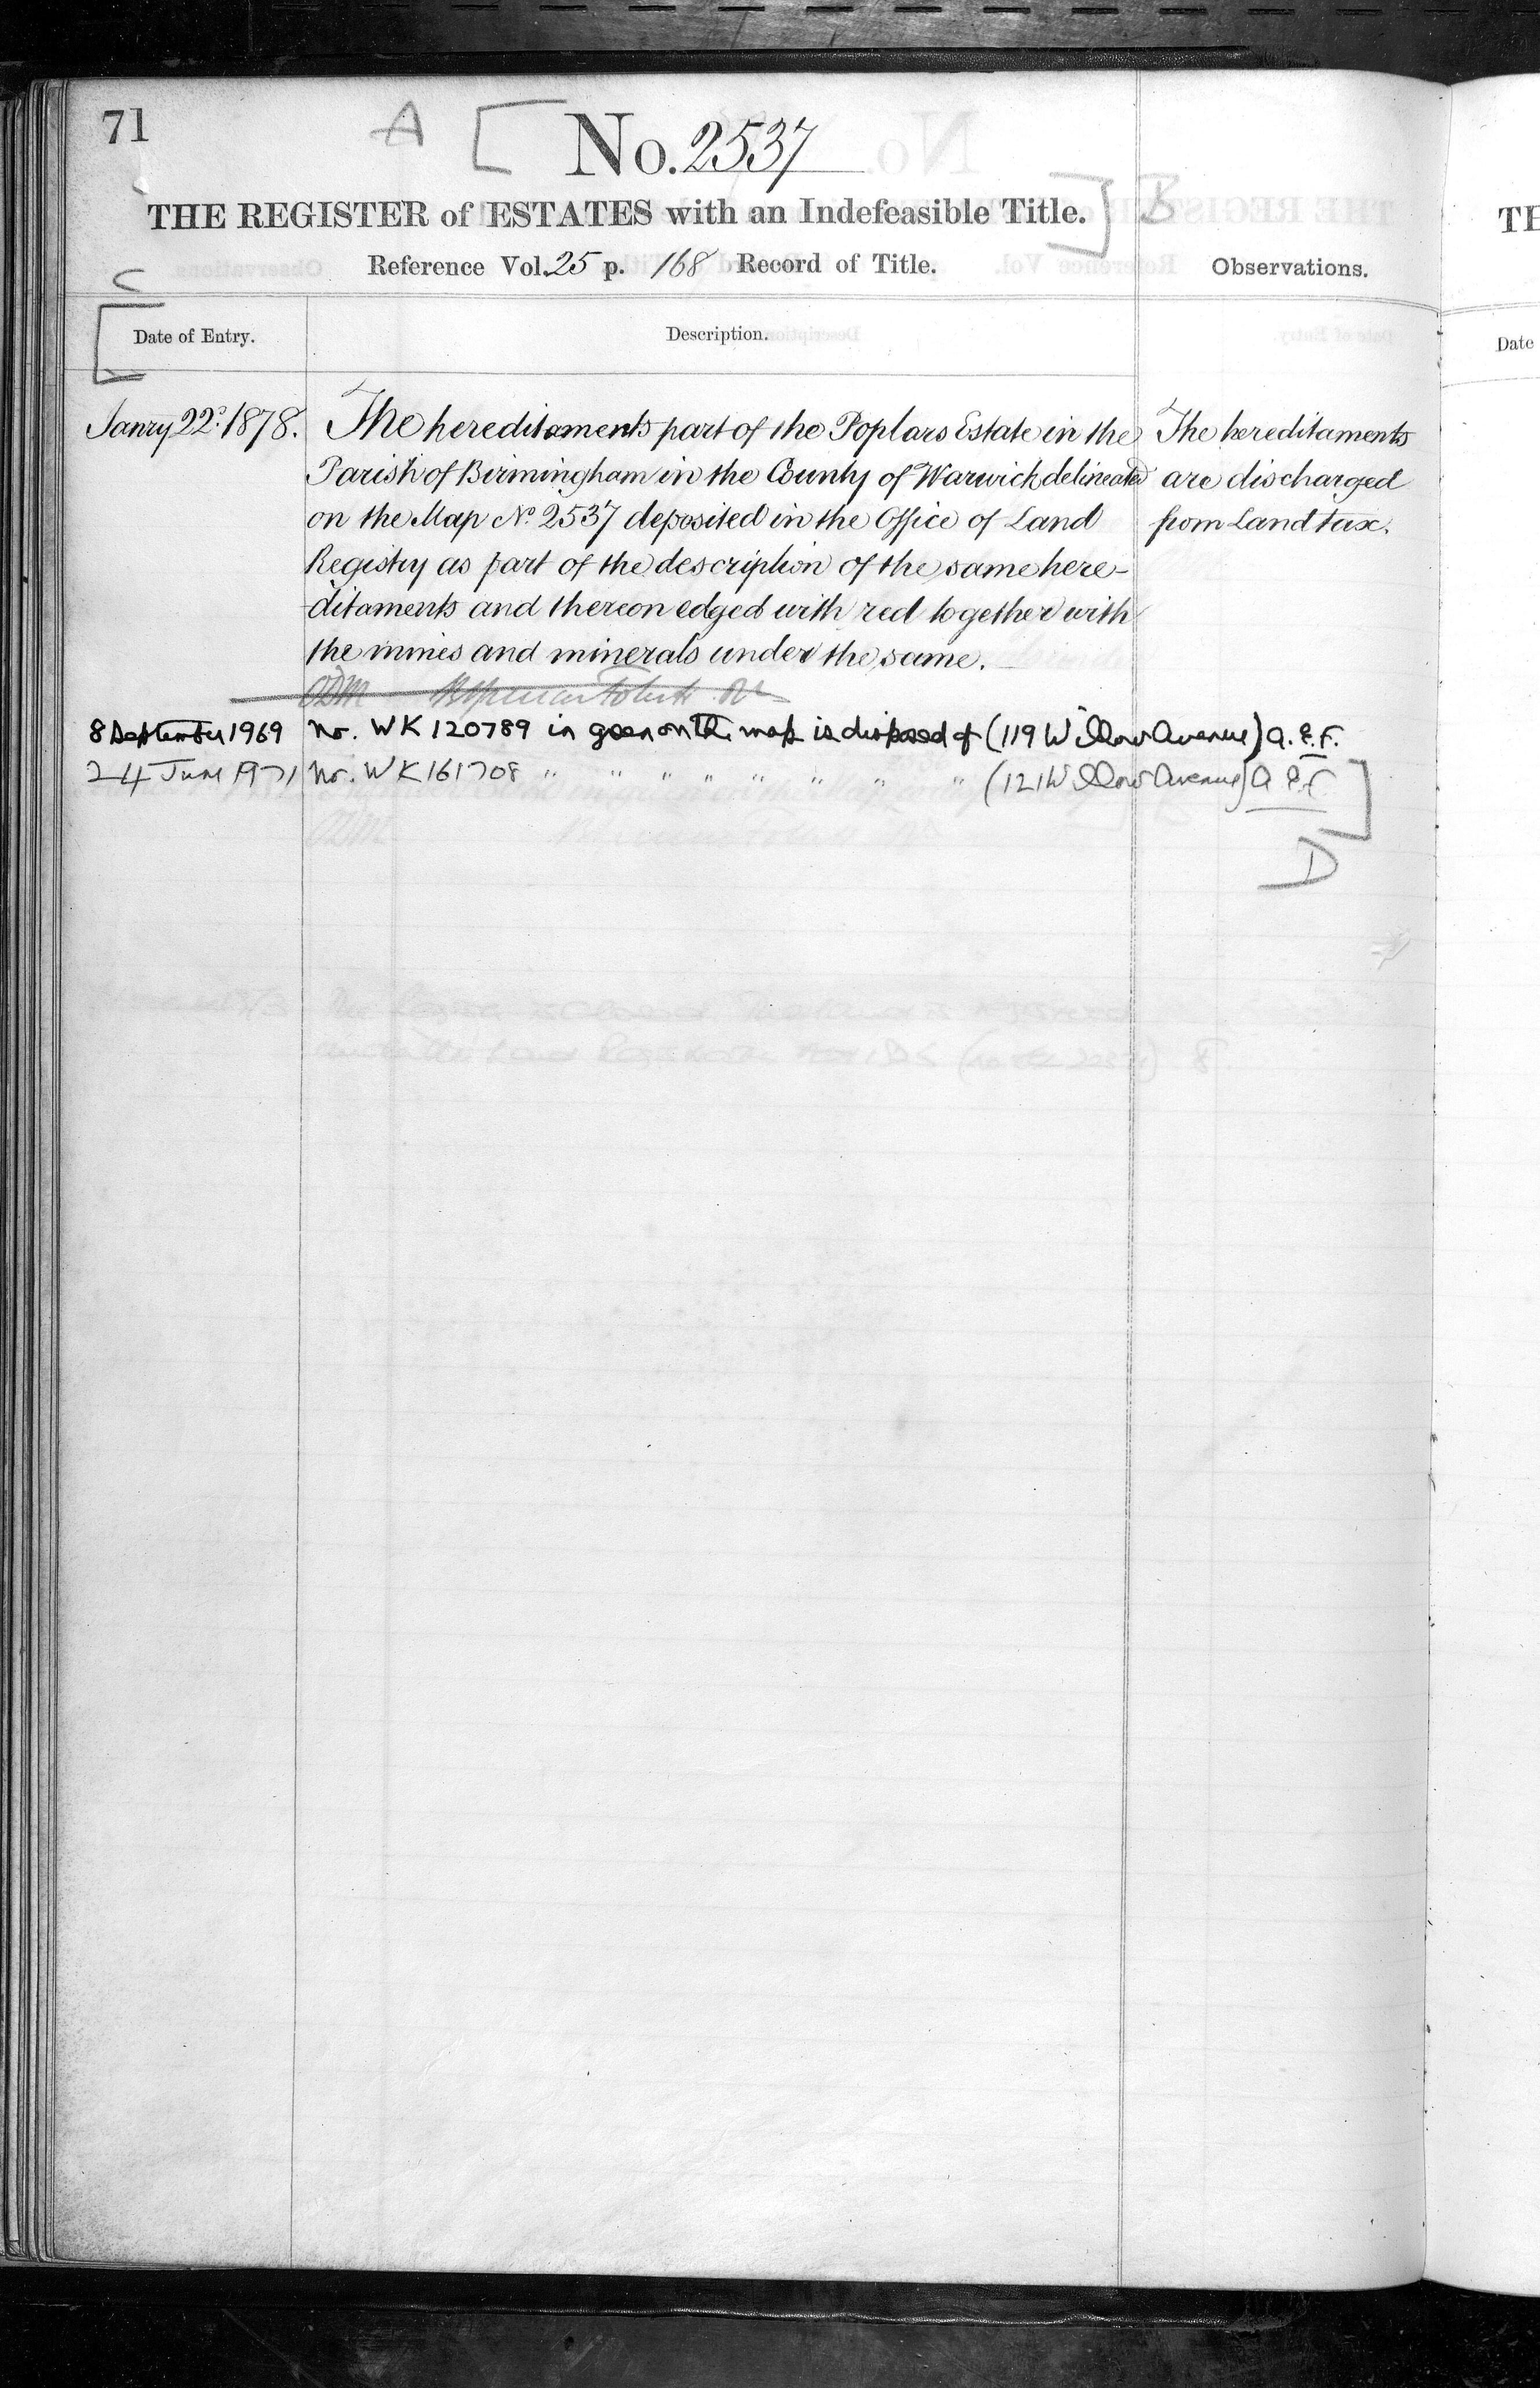 71
A
No. 2537
THE REGISTER of ESTATES with an Indefeasible Title.
B
Reference Vol. 25 p. 168 Record of Title.
Observations.
C
Date of Entry.
Description.
Janry 22d. 1878.
The hereditaments part of the Poplars Estate in the
Parish of Birmingham in the County of Warwick delineated
on the Map No. 2537 deposited in the Office of Land
Registry as part of the description of the same here-
ditaments and thereon edged with red together with
the mines and minerals under the same.
The hereditaments
are discharged
from Land tax.
8 September 1969 No. WK 120789 in green on the map is disposed of (119 Willow Avenue) a.E.F.
24 June 1971 No. WK 161708 " " " " " " " " (121 Willow Avenue) a E.F.
D
TH
Date